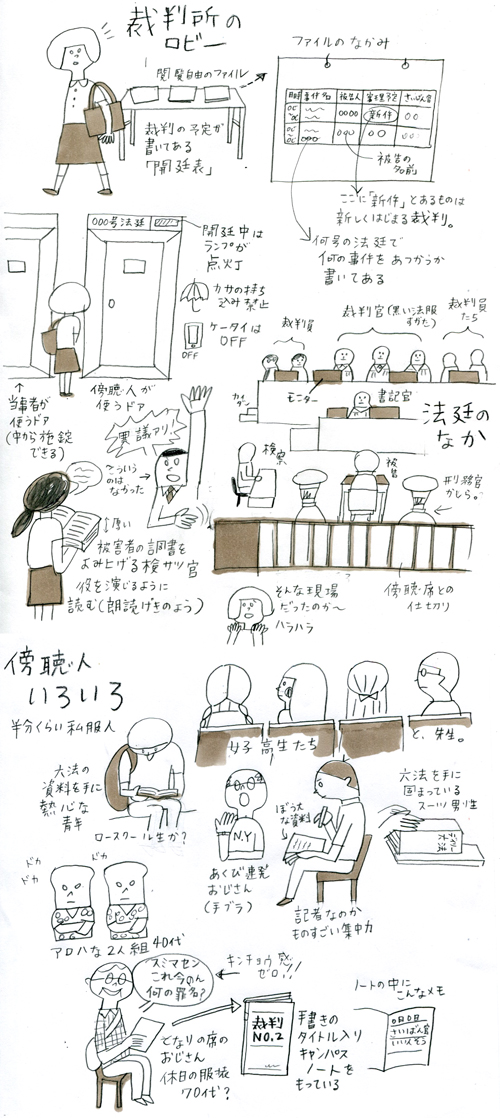 裁判所の
ロビー
閲覧自由のファイル
裁判の予定が
書いてある
「開廷表」
ファイルのなかみ
日時 事件名 被告人 審理予定 さいばん官
〇〇〇〇 新件 〇〇
〇〇〇 〇〇 〇〇
被告の
名前
ここに「新件」とあるものは
新しくはじまる裁判。
何号の法廷で
何の事件をあつかうか
書いてある
000号法廷
開廷中は
ランプが
点灯
カサの持ち
込み禁止
ケータイは
OFF
OFF
当事者が
使うドア
(中から施錠
できる)
傍聴人が
使うドア
異議アリ!
こういう
のは
なかった
厚い
被害者の調書を
よみ上げる検サツ官
役を演じるように
読む(朗読げきのよう)
裁判員
裁判官(黒い法服
すがた)
裁判員
たち
モニター
書記官
法廷の
なか
検察
被告
刑務官
かしら。
傍聴席との
仕切り
そんな現場
だったのか〜
ハラハラ
傍聴人
いろいろ
半分くらい私服人
女子高生たち
と、先生。
六法の
資料を手に
熱心な
青年
ロースクール生か?
N.Y
あくび連発
おじさん
(手ブラ)
ぼう大
な資料
記者なのか
ものすごい集中力
六法を手に
固まっている
スーツ男り生
ドカ
ドカ
ドカ
アロハな2人組 40代
スミマセン
これ今のん
何の罪名?
キンチョウ感
ゼロ!!
となりの席の
おじさん
休日の服装
70代?
裁判
NO.2
手書きの
タイトル入り
キャンパス
ノートを
もっている
ノートの中に
こんなメモ
〇月〇日
さいばん官
いいんそう